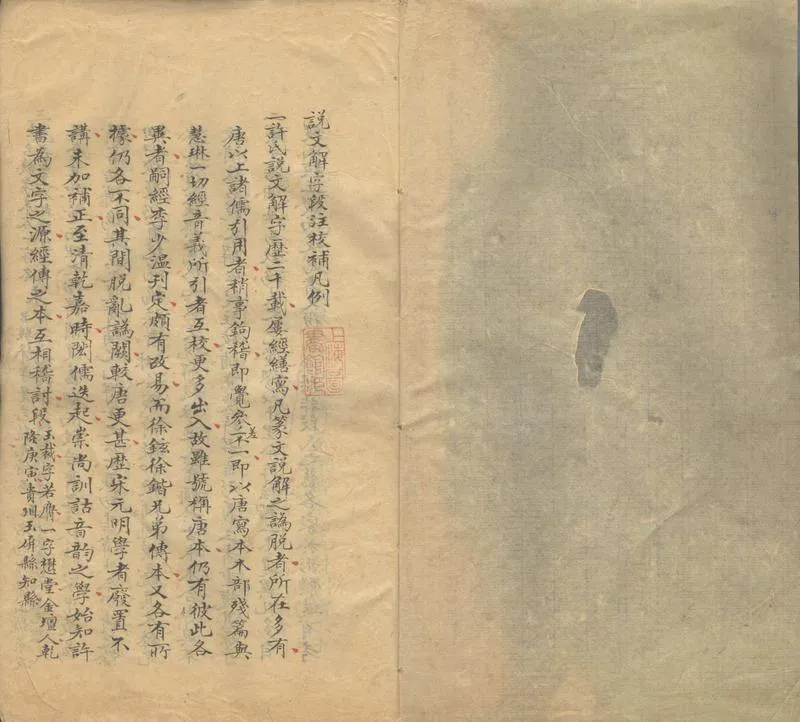 說文解字段注校補凡例
一許氏說文解字歷二千載屢經繕寫凡篆文說解之譌脫者所在多有
唐以上諸儒引用者稍事鉤稽即覺參差不一即以唐寫本木部殘篇與
慧琳一切經音義所引者互校更多出入故雖號稱唐本仍有彼此各
異者嗣經李少溫刊定頗有改易而徐鉉徐鍇兄弟傳本又各有所
據仍各不同其間脫亂譌闕較唐更甚歷宋元明學者廢置不
講未加補正至清乾嘉時閎儒迭起崇尚訓詁音韵之學始知許
書為文字之源經傳之本互相稽討段
玉裁字若膺一字懋堂金壇人乾
隆庚寅貴州玉屏縣知縣